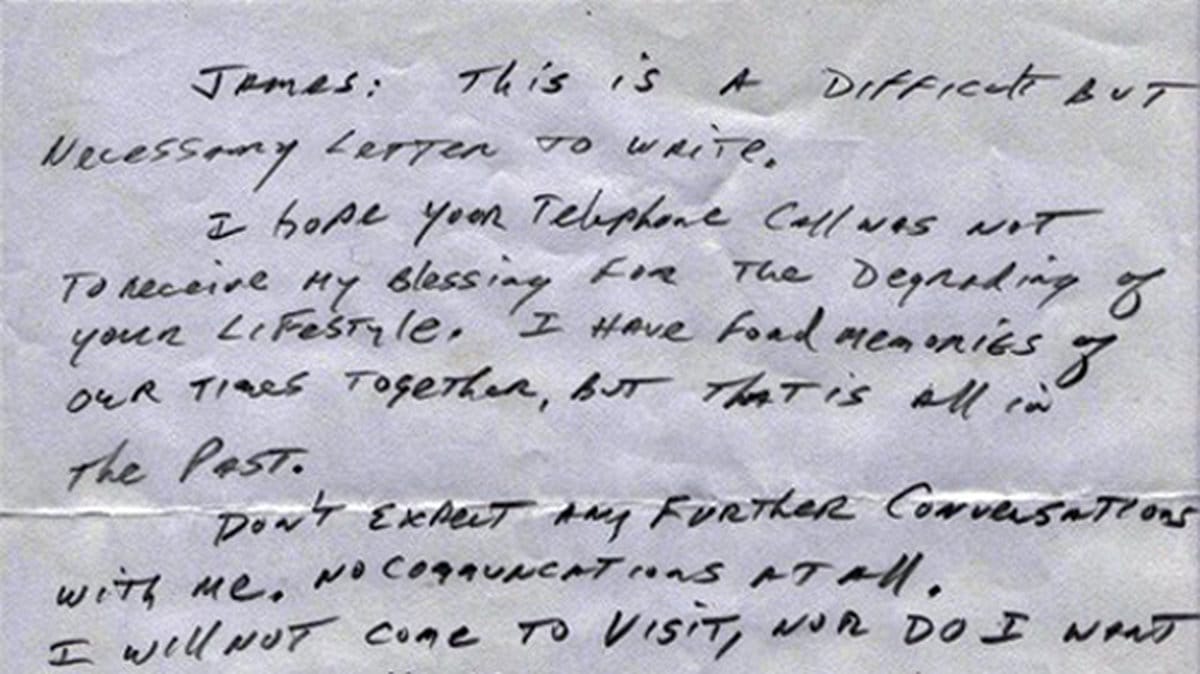 James: This is a Difficult But
Necessary Letter to write.
I hope your Telephone Call was not
To receive my Blessing for the Degrading of
your Lifestyle. I have fond memories of
our times together, But that is all in
the Past.
Don't expect any Further Conversations
with me. No Communcations at all.
I will not come to visit, nor do I want